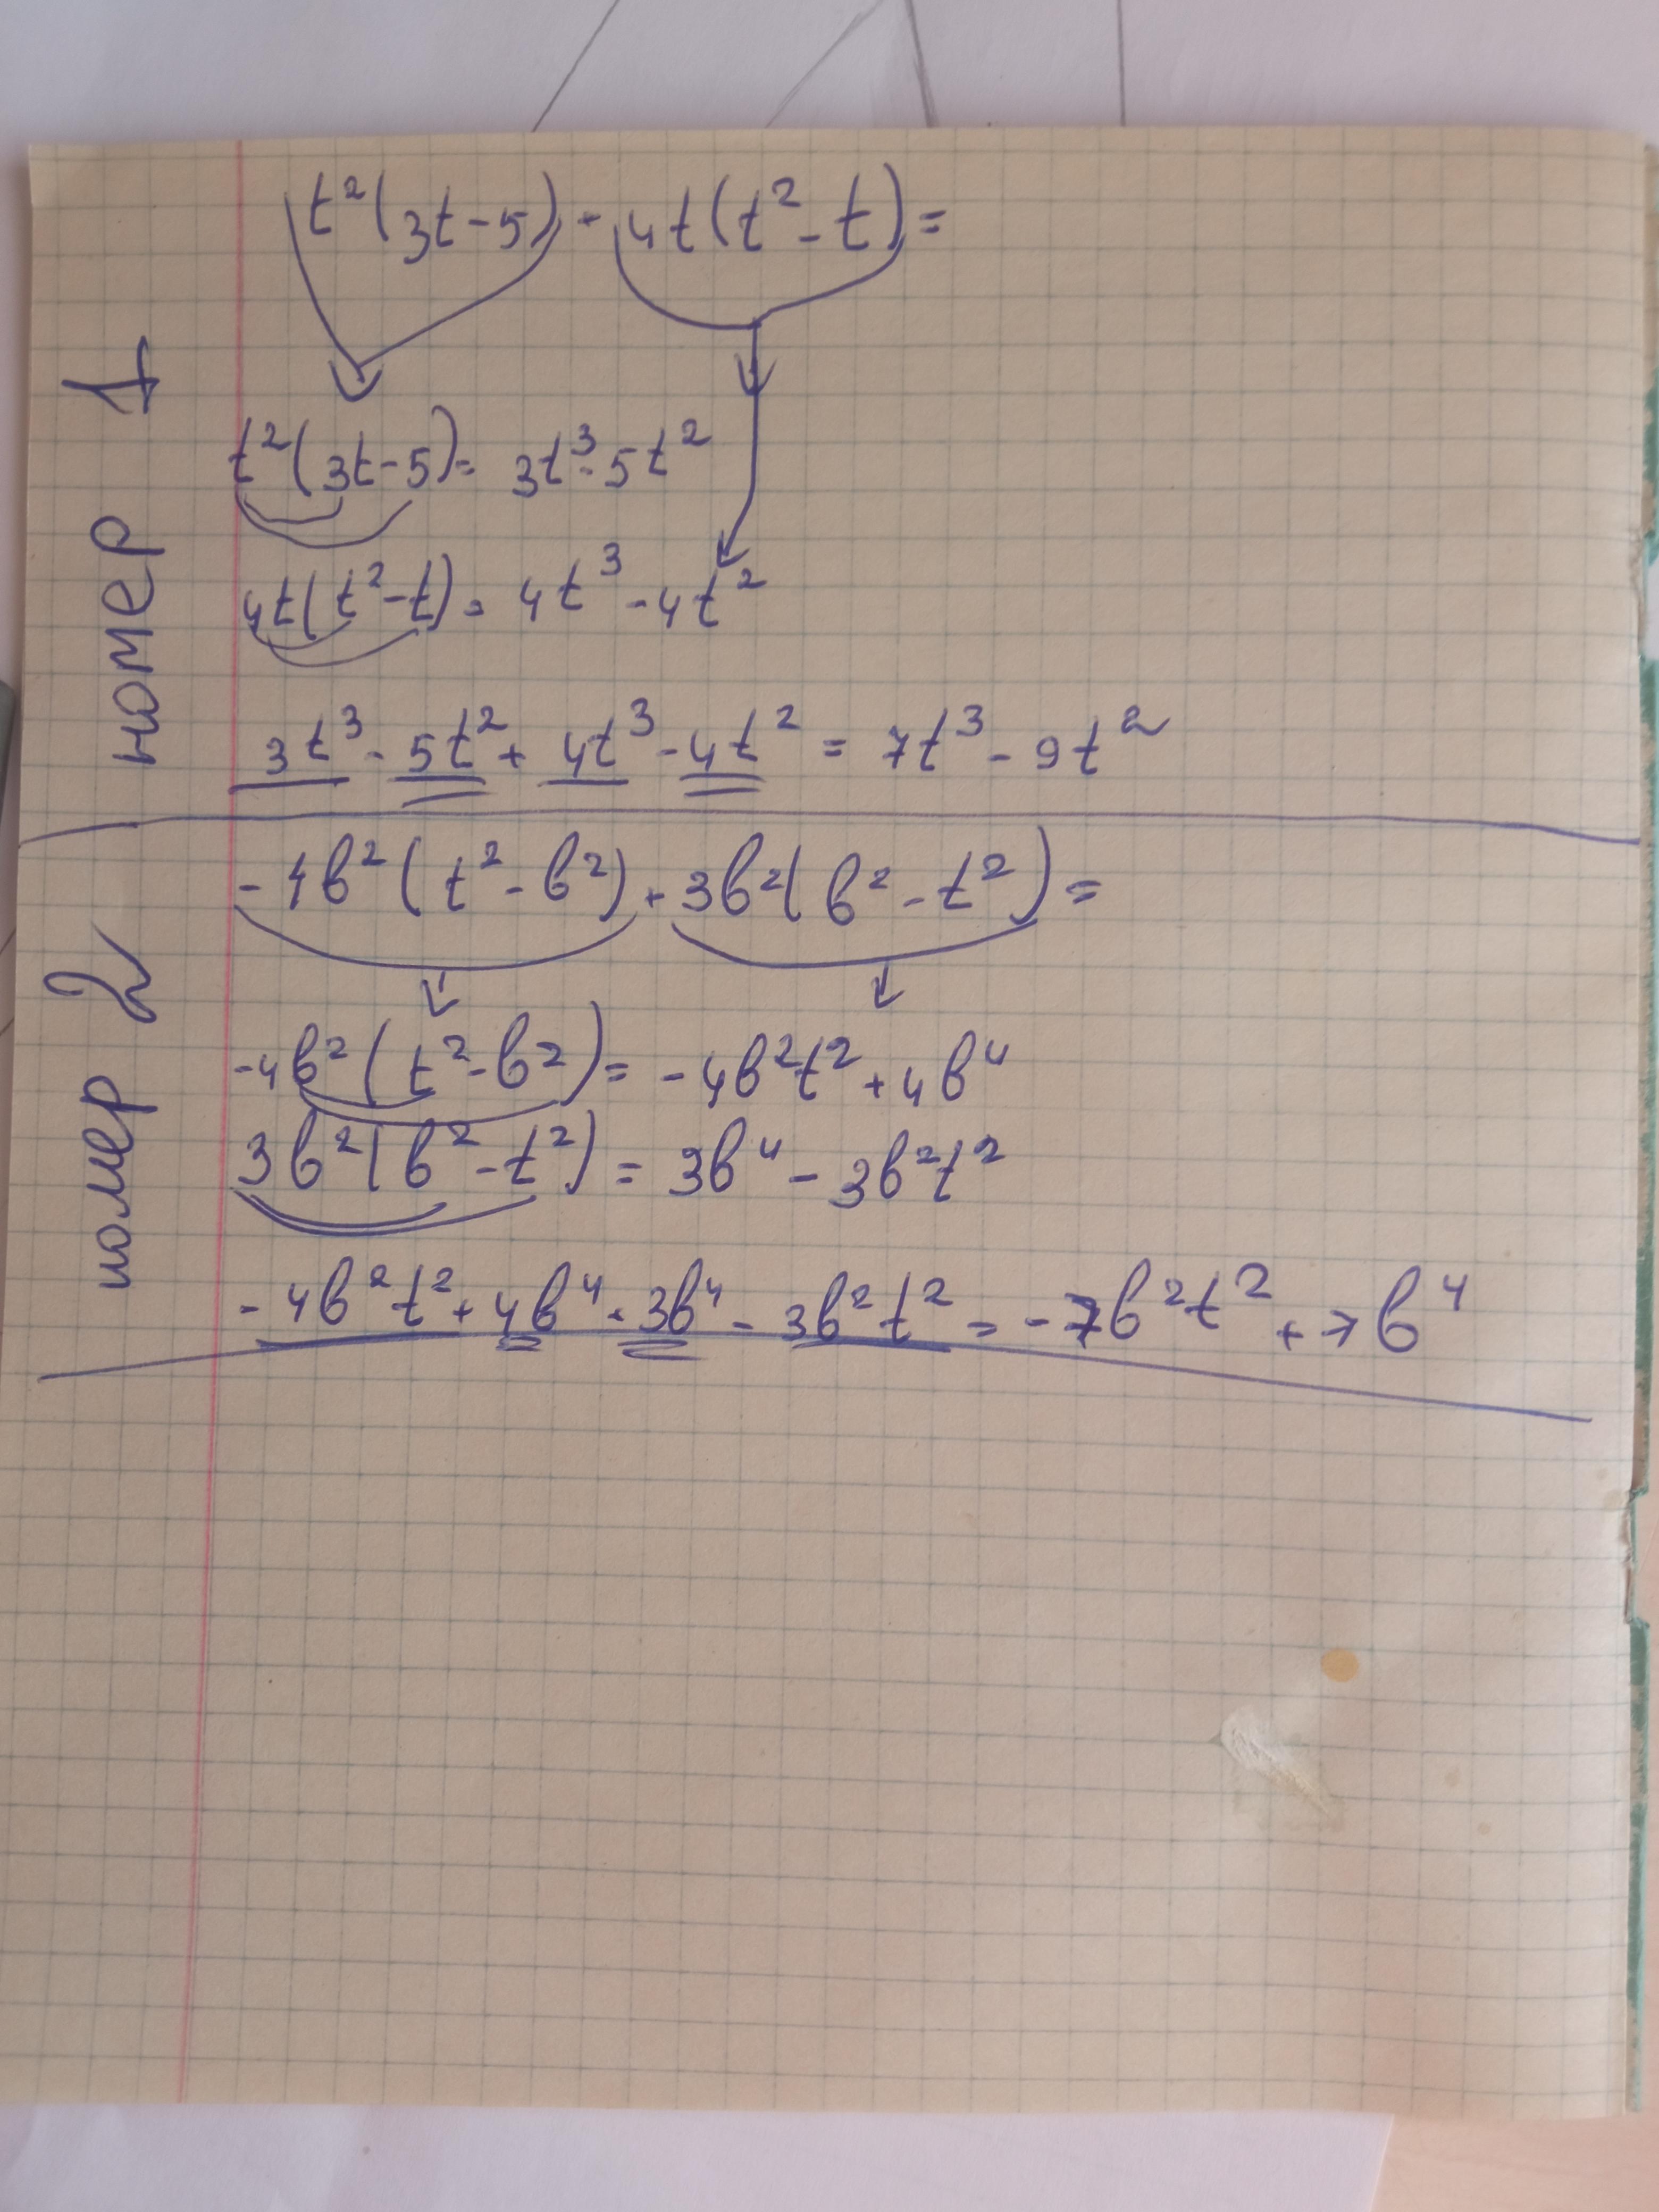 номер 1
t²(3t-5)+4t(t²-t)=
t²(3t-5)=3t³-5t²
4t(t²-t)=4t³-4t²
3t³-5t²+4t³-4t²=7t³-9t²
номер 2
-4в²(t²-в²)+3в²(в²-t²)=
-4в²(t²-в²)=-4в²t²+4в⁴
3в²(в²-t²)=3в⁴-3в²t²
-4в²t²+4в⁴+3в⁴-3в²t²=-7в²t²+7в⁴